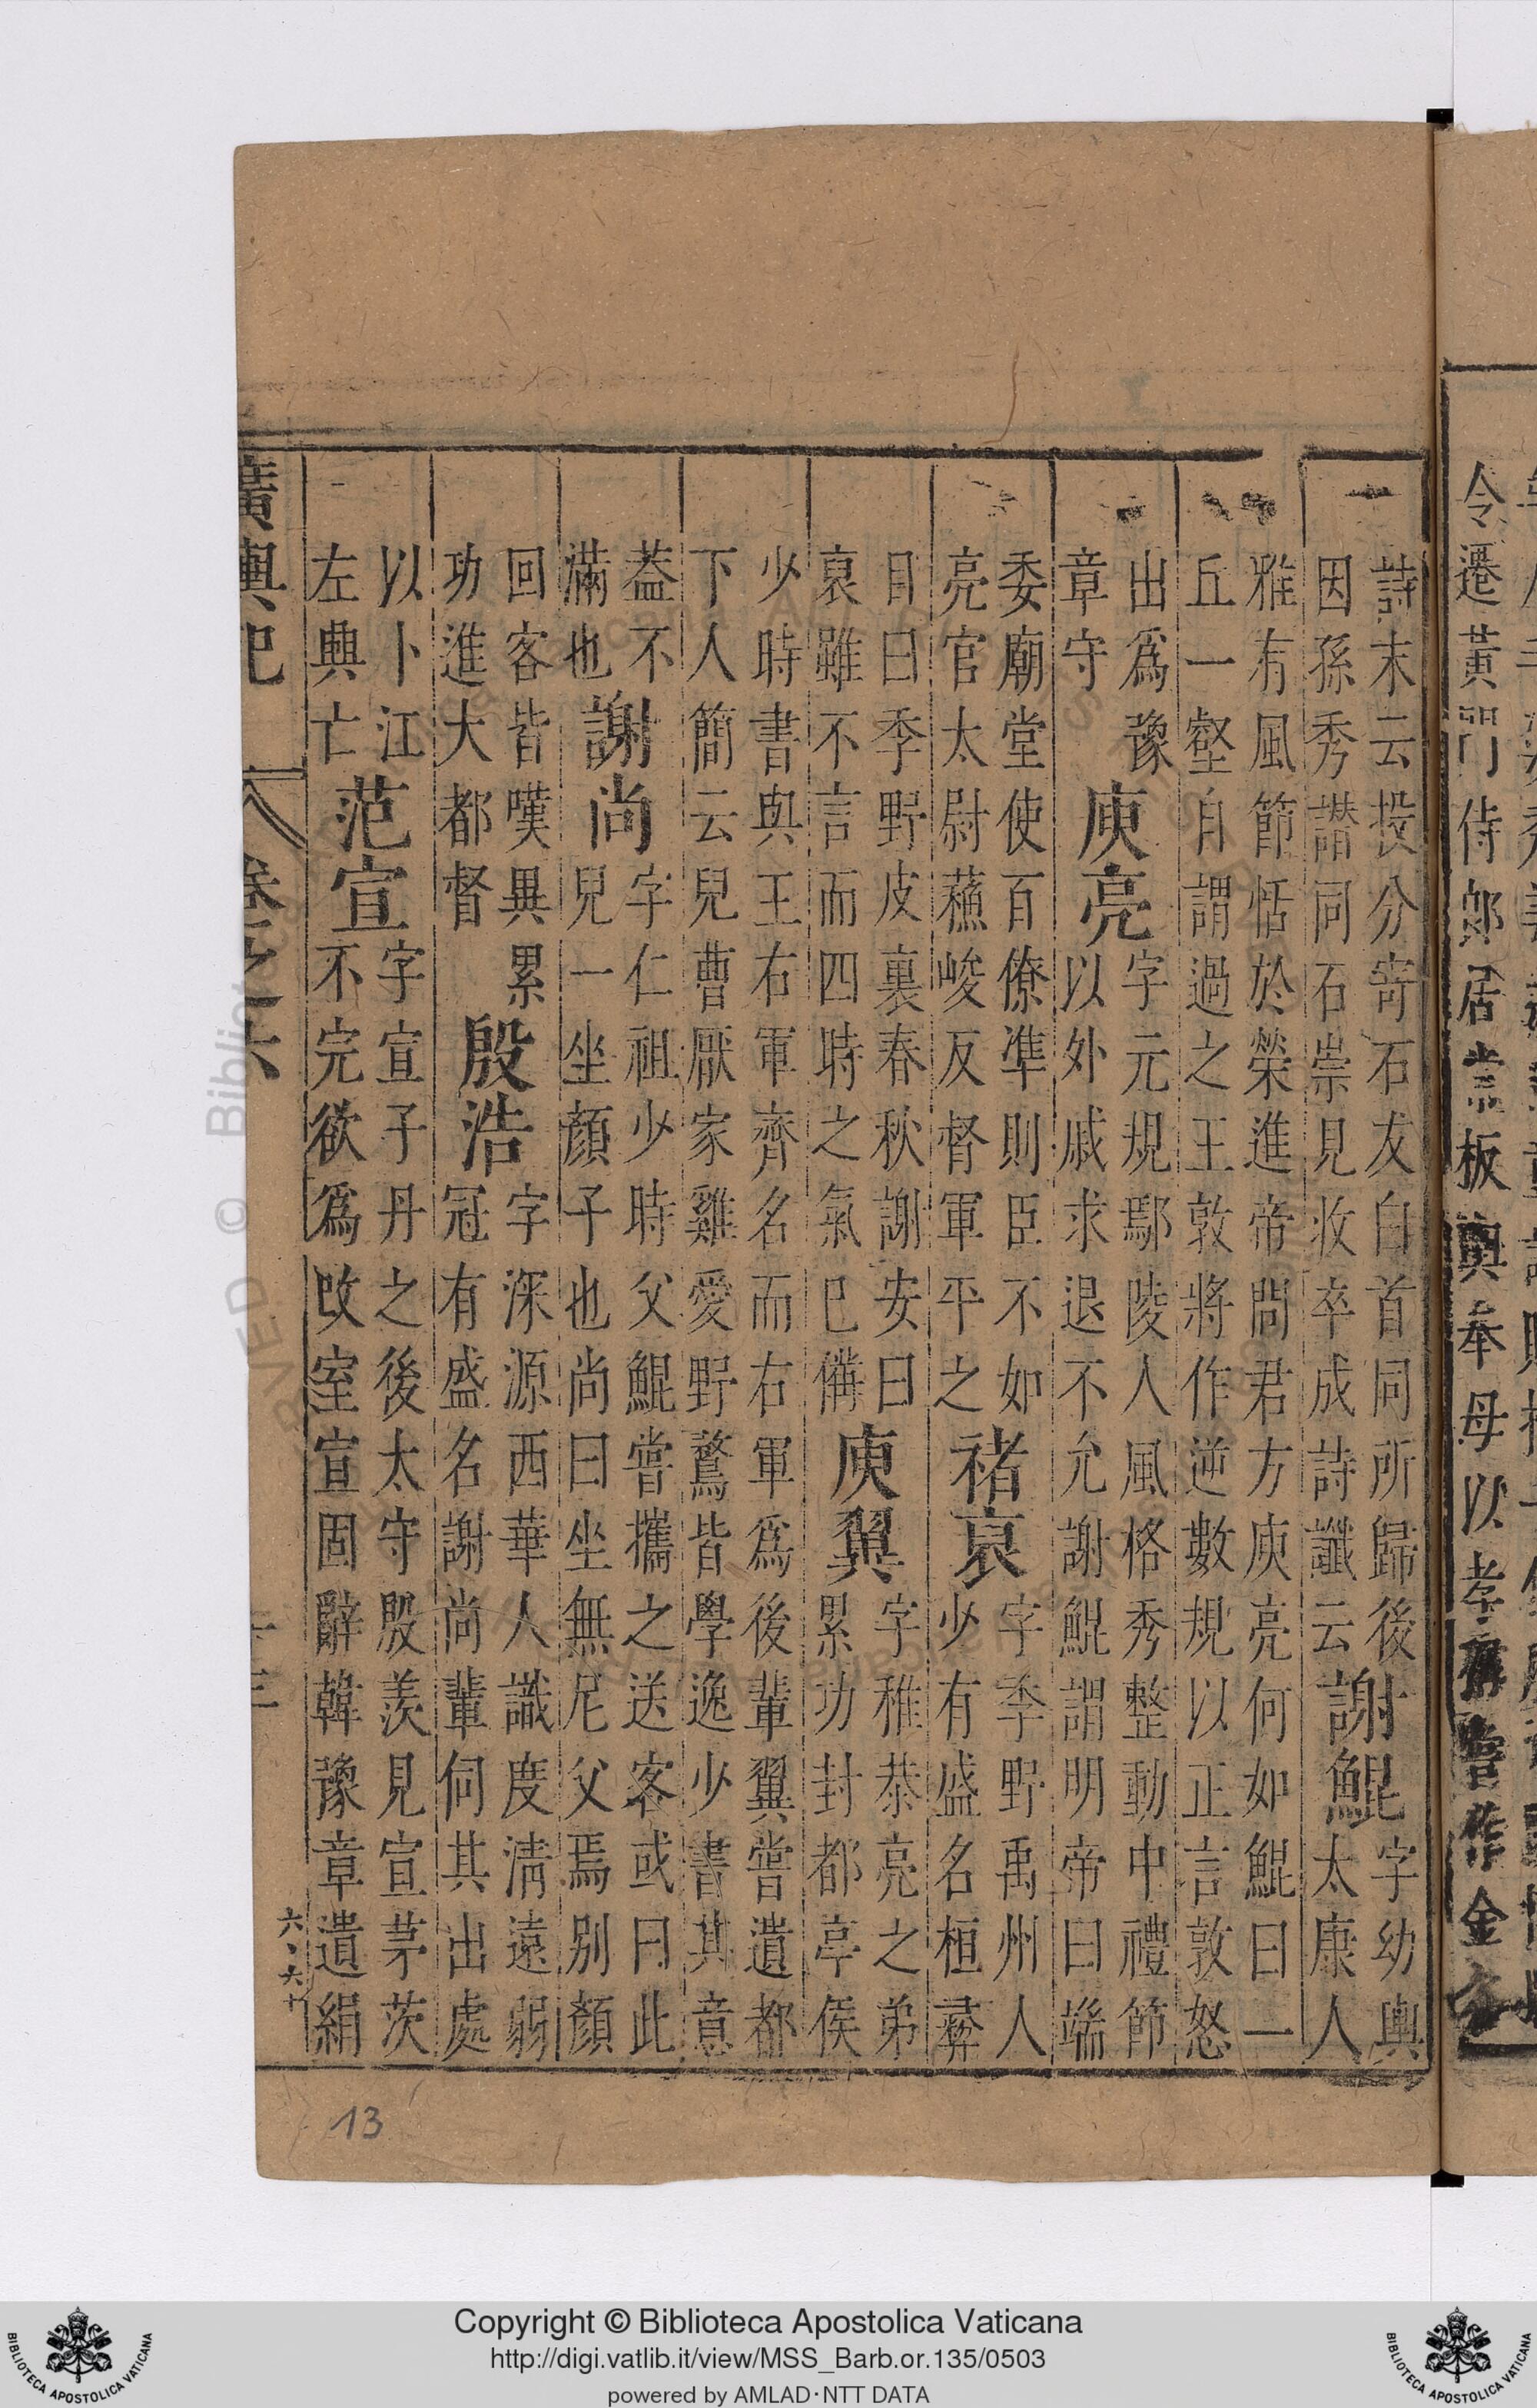 令遷黃門侍郎居常板輿奉母以孝稱嘗作金谷
詩末云投分寄石友白首同所歸後
因孫秀譖同石崇見收卒成詩讖云
謝鯤
字幼輿
太康人
雅有風節恬於榮進帝問君方庾亮何如鯤曰一
丘一壑自謂過之王敦將作逆數規以正言敦怒
出爲豫
章守
庾亮
字元規鄢陵人風格秀整動中禮節
以外戚求退不允謝鯤謂明帝曰端
委廟堂使百僚準則臣不如
亮官太尉蘇峻反督軍平之
禇裒
字季野禹州人
少有盛名桓彛
目曰季野皮裏春秋謝安曰
裒雖不言而四時之氣已備
庾翼
字稚恭亮之弟
累功封都亭侯
少時書與王右軍齊名而右軍爲後輩翼嘗遺都
下人簡云兒曹厭家雞愛野鶩皆學逸少書其意
葢不
滿也
謝尚
字仁祖少時父鯤嘗攜之送客或曰此
兒一坐顏子也尚曰坐無尼父焉別顏
回客皆嘆異累
功進大都督
殷浩
字深源西華人識度淸遠弱
冠有盛名謝尚輩伺其出處
以卜江
左興亡
范宣
字宣子丹之後太守殷羨見宣茅茨
不完欲爲改室宣固辭韓豫章遺絹
廣輿記
卷之六
十三
13
Copyright © Biblioteca Apostolica Vaticana
http://digi.vatlib.it/view/MSS_Barb.or.135/0503
powered by AMLAD·NTT DATA